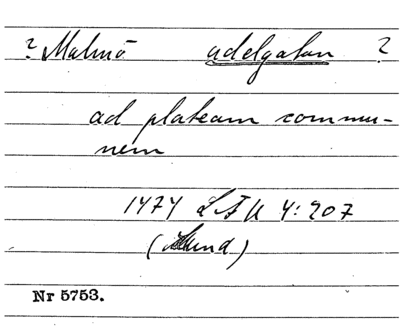 ? Malmö adelgatan ?
ad plateam commu-
nem
1474 LÄU 4:207
(Lund)
Nr 5753.